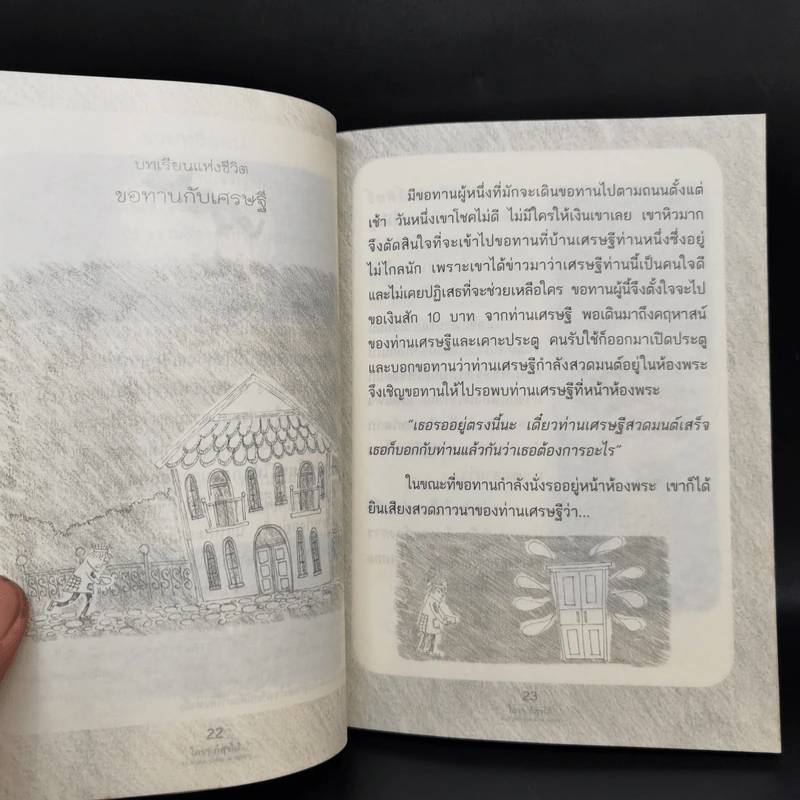 บทเรียนแห่งชีวิต
ขอทานกับเศรษฐี
22
ใครๆ ก็สุขได้
มีขอทานผู้หนึ่งที่มักจะเดินขอทานไปตามถนนตั้งแต่
เช้า วันหนึ่งเขาโชคไม่ดี ไม่มีใครให้เงินเขาเลย เขาหิวมาก
จึงตัดสินใจที่จะเข้าไปขอทานที่บ้านเศรษฐีท่านหนึ่งซึ่งอยู่
ไม่ไกลนัก เพราะเขาได้ข่าวมาว่าเศรษฐีท่านนี้เป็นคนใจดี
และไม่เคยปฏิเสธที่จะช่วยเหลือใคร ขอทานผู้นี้จึงตั้งใจจะไป
ขอเงินสัก 10 บาท จากท่านเศรษฐี พอเดินมาถึงคฤหาสน์
ของท่านเศรษฐีและเคาะประตู คนรับใช้ก็ออกมาเปิดประตู
และบอกขอทานว่าท่านเศรษฐีกำลังสวดมนต์อยู่ในห้องพระ
จึงเชิญขอทานให้ไปรอพบท่านเศรษฐีที่หน้าห้องพระ
"เธอรออยู่ตรงนี้นะ เดี๋ยวท่านเศรษฐีสวดมนต์เสร็จ
เธอก็บอกกับท่านแล้วกันว่าเธอต้องการอะไร"
ในขณะที่ขอทานกำลังนั่งรออยู่หน้าห้องพระ เขาก็ได้
ยินเสียงสวดภาวนาของท่านเศรษฐีว่า...
23
ใครๆ ก็สุขได้